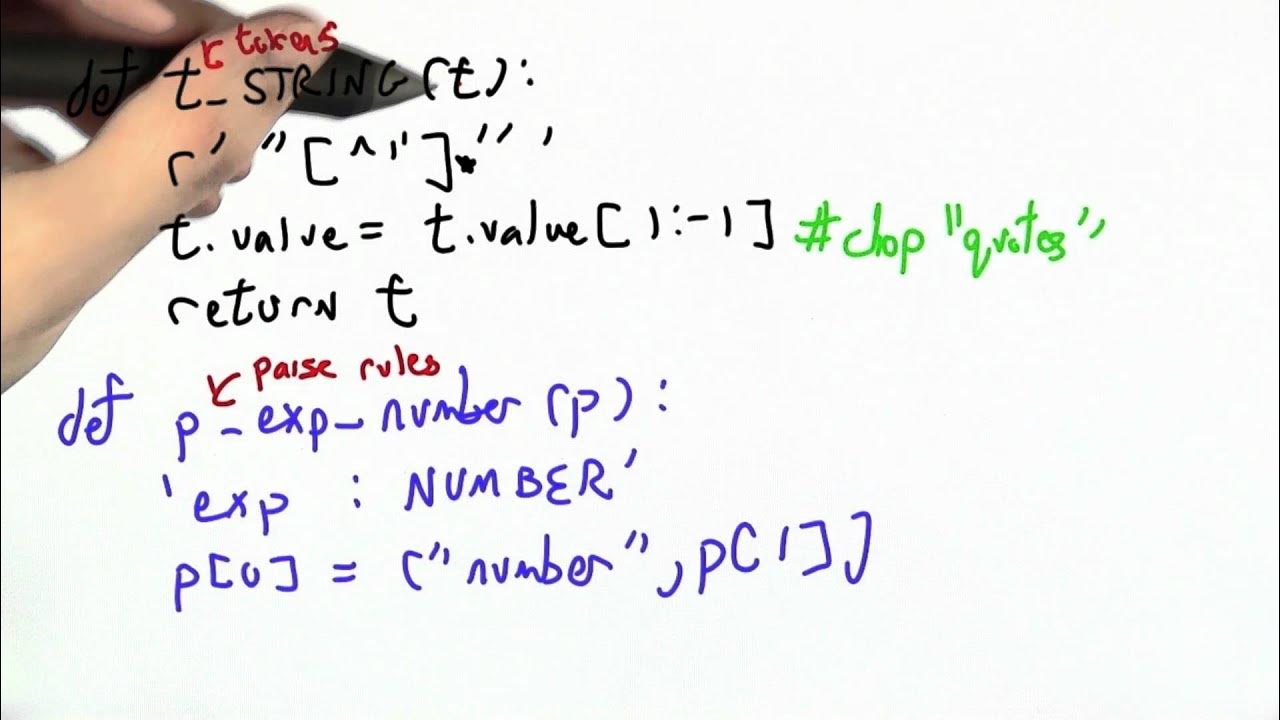 tokens
def t_STRING(t):
r' "[^"]*" '
t.value = t.value[1:-1] #chop "quotes"
return t
parse rules
def p_exp_number(p):
'exp : NUMBER'
p[0] = ("number",p[1])